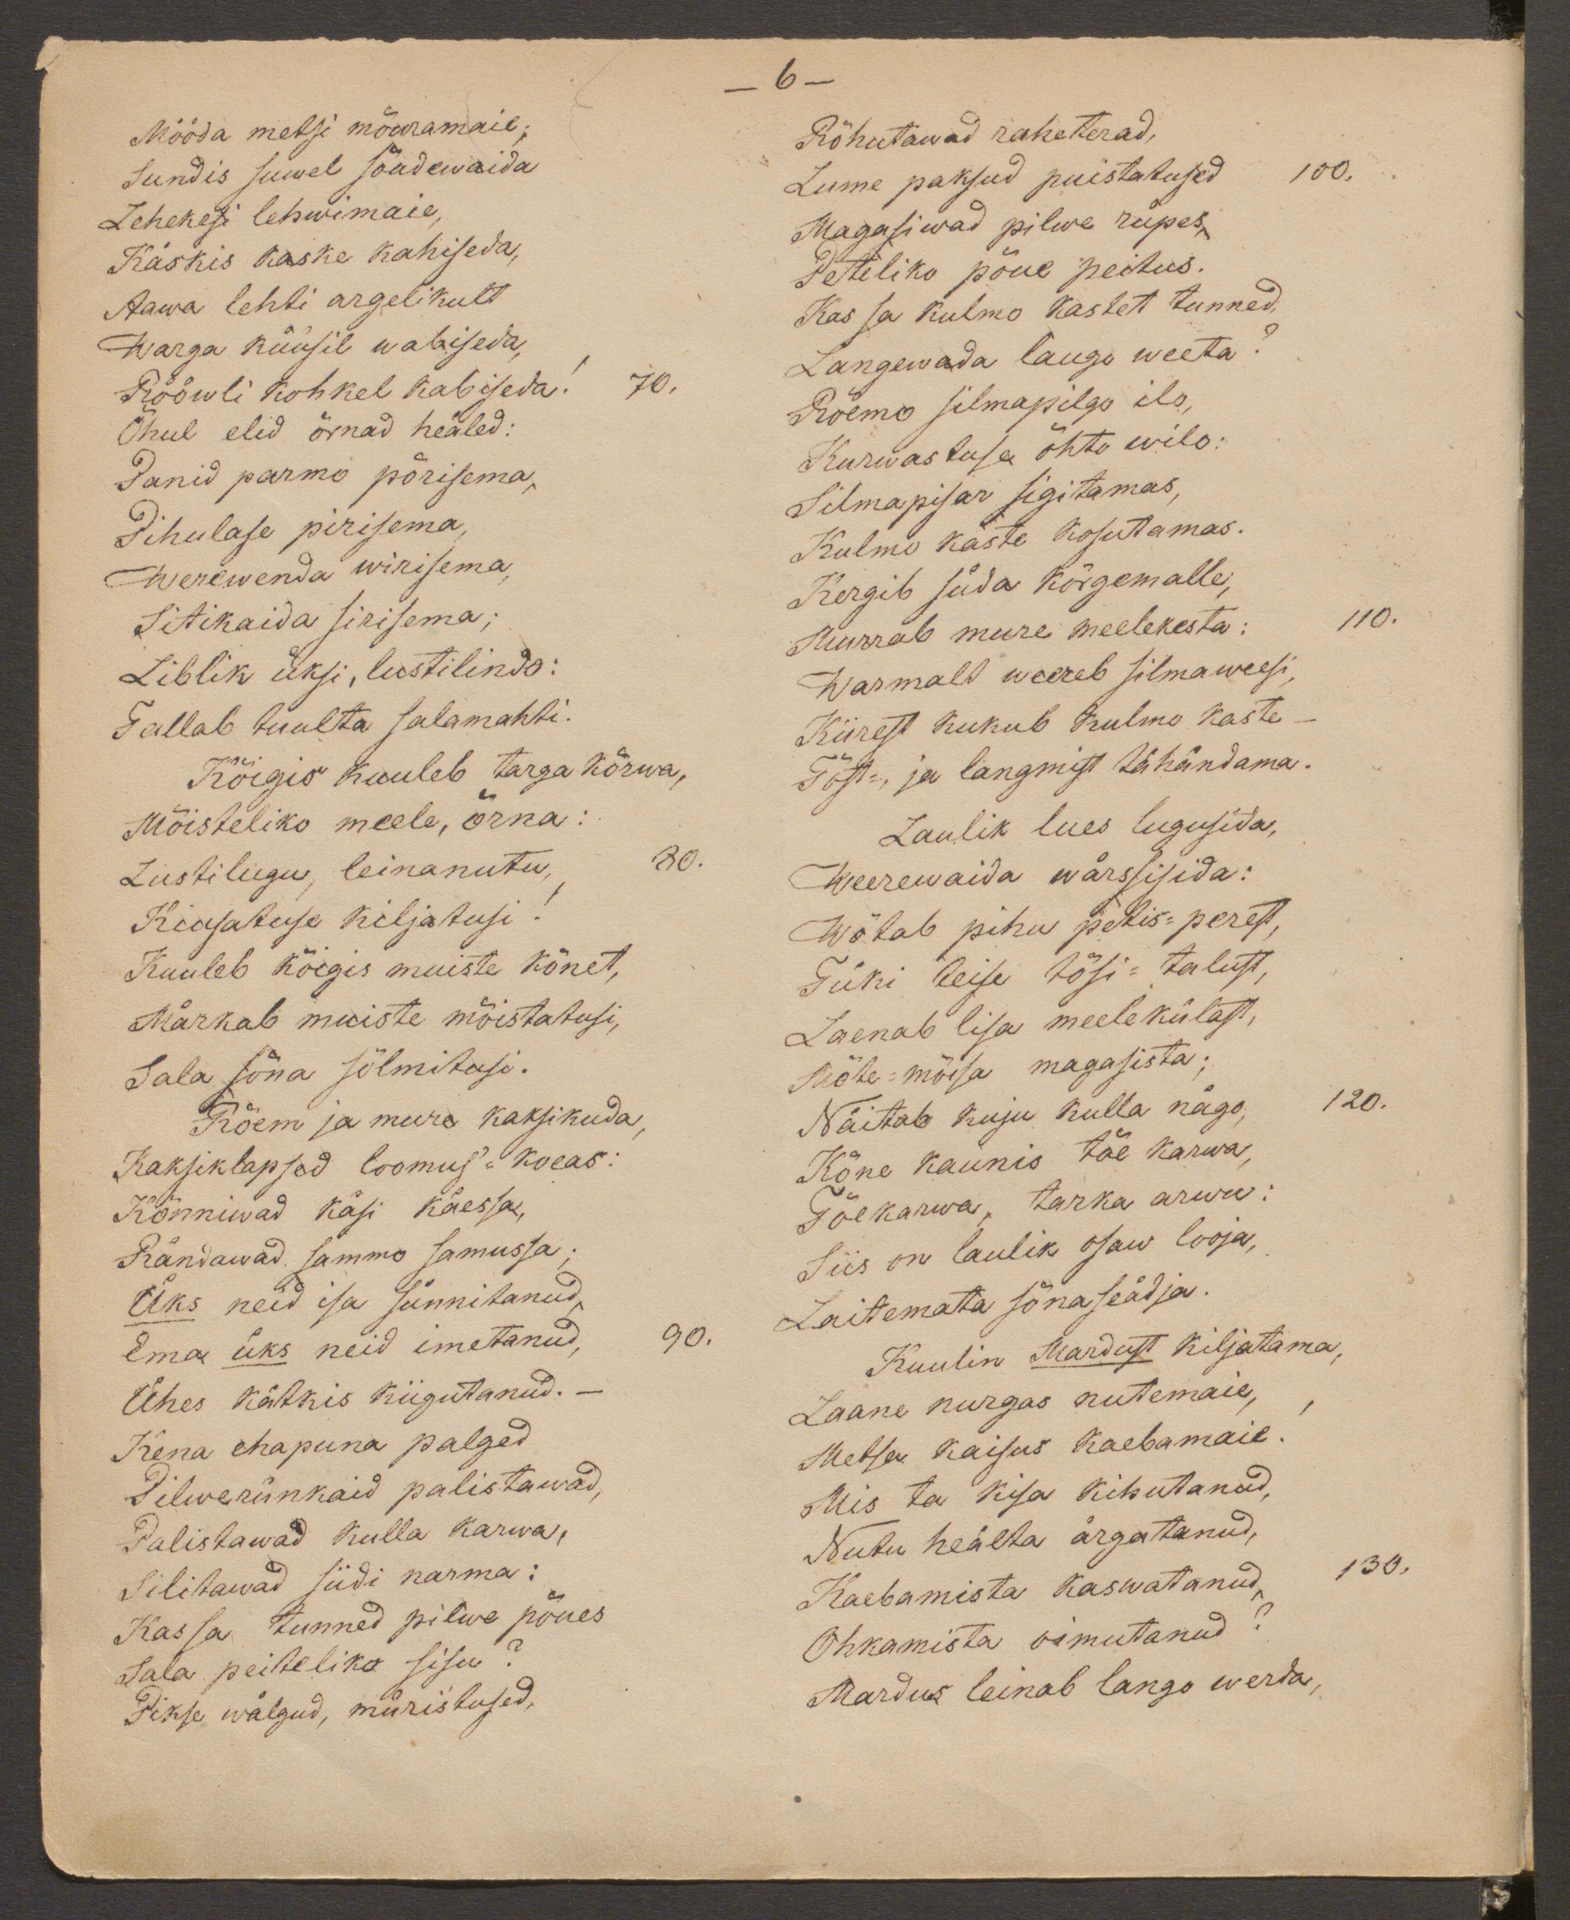 — 6 —
Mööda metsi mõuramaie;
Sundis suwel sõudewaida
Lehekesi lehwimaie,
Käskis kaske kahiseda,
Aawa lehti argelikult
Warga küüsil wabiseda,
Rööwli kohkel kabiseda! 70.
Õhul elid õrnad heäled:
Panid parmo põrisema,
Pihulase pirisema,
Werewenda wirisema,
Sitikaida sirisema;
Liblik üksi, lustilindo:
Tallab tuulta salamahti.
Kõigis kuuleb targa kõrwa,
Mõisteliko meele, õrna:
Lustilugu, leinanutu, 80.
Kiusatuse kiljatusi!
Kuuleb kõigis muiste kõnet,
Märkab muiste mõistatusi,
Sala sõna sõlmitusi.
Rõem ja mure kaksikuda,
Kaksiklapsed loomus'= koeas:
Kõnniwad käsi käessa,
Rändawad sammo samussa;
Üks neid isa sünnitanud,
Ema üks neid imetanud, 90.
Ühes kätkis kiigutanud. —
Kena ehapuna palged
Pilwerünkaid palistawad,
Palistawad kulla karwa,
Silitawad siidi narma:
Kas sa tunned pilwe põues
Sala peiteliko sisu?
Pikse wälgud, müristused,
Rõhutawad raheterad,
Lume paksud puistatused 100.
Magasiwad pilwe rüpes,
Peteliko põue peitus.
Kas sa kulmo kastet tunned,
Langewada laugo weeta?
Rõemo silmapilgo ilo,
Kurwastuse õhto wilo:
Silmapisar sigitamas,
Kulmo kaste kosutamas.
Kergib süda kõrgemalle,
Murrab mure meelekesta: 110.
Warmalt weereb silmaweesi,
Kiirest kukub kulmo kaste —
Tõst=, ja langmist tähändama.
Laulik lues lugusida,
Weerewaida wärssisida:
Wõtab pihu petis=perest,
Tüki teise tõsi=talust,
Laenab lisa meelekülast,
Mõte=mõisa magasista;
Näitab kuju kulla nägo, 120.
Kõne kaunis tõe karwa,
Tõekarwa, tarka arwu:
Siis on laulik osaw looja,
Laitemata sõnaseädja.
Kuulin Mardust kiljatama,
Laane nurgas nutemaie,
Metsa kaisus kaebamaie!
Mis ta kisa kihutanud,
Nutu heälta ärgatanud,
Kaebamista kaswatanud, 130.
Ohkamista oimutanud?
Mardus leinab lango werda,